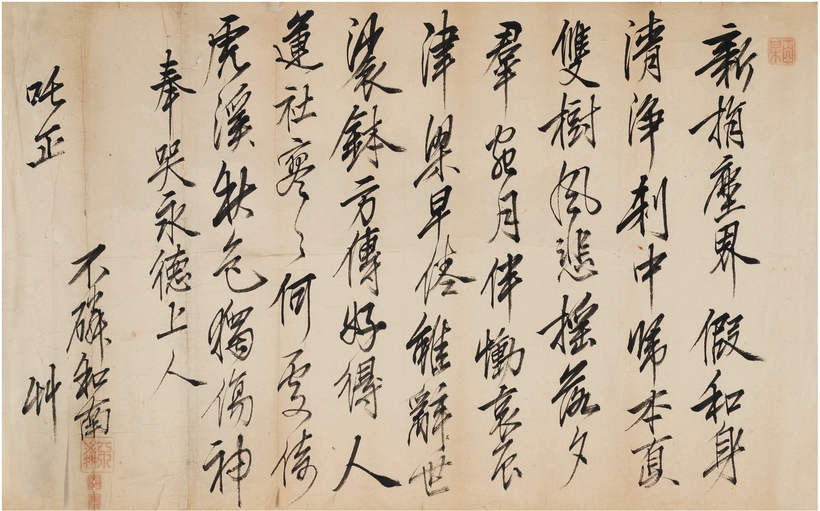 新捐塵界假和身
清淨刹中歸本真
雙樹風悲搖落夕
羣烏月伴慟哀辰
津梁早倦難辭世
裟鉢方傳好得人
蓮社寥〻何處倚
虎溪秋色獨傷神
奉哭永德上人
吒正
不磷和南
艸